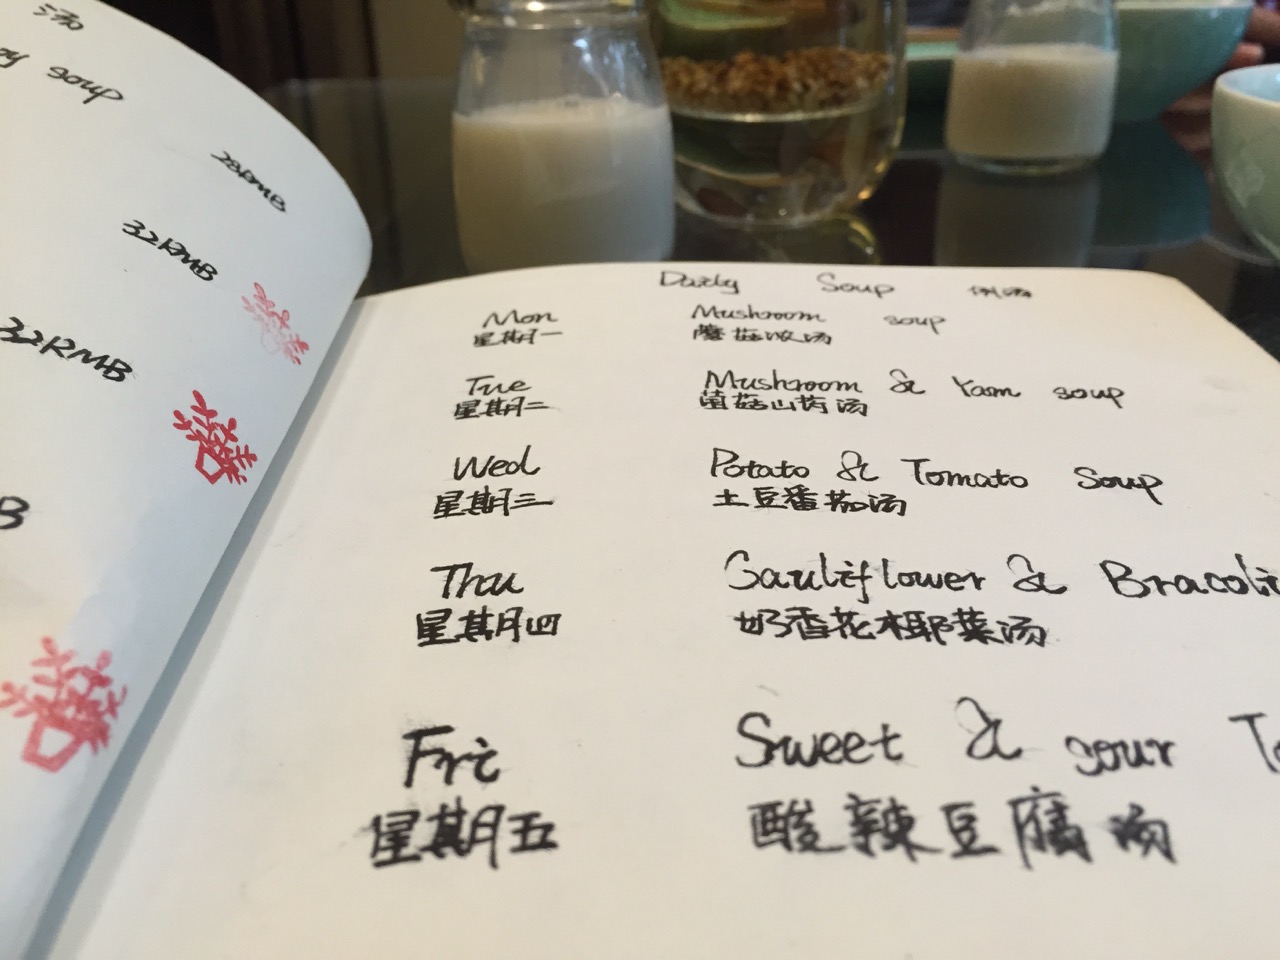 汤
soup
28RMB
32RMB
32RMB
B
Daily Soup 例汤
Mon Mushroom soup
星期一 蘑菇浓汤
Tue Mushroom & Yam soup
星期二 菌菇山药汤
Wed Potato & Tomato Soup
星期三 土豆番茄汤
Thu Cauliflower & Bracoli
星期四 奶香花椰菜汤
Fri Sweet & sour To
星期五 酸辣豆腐汤